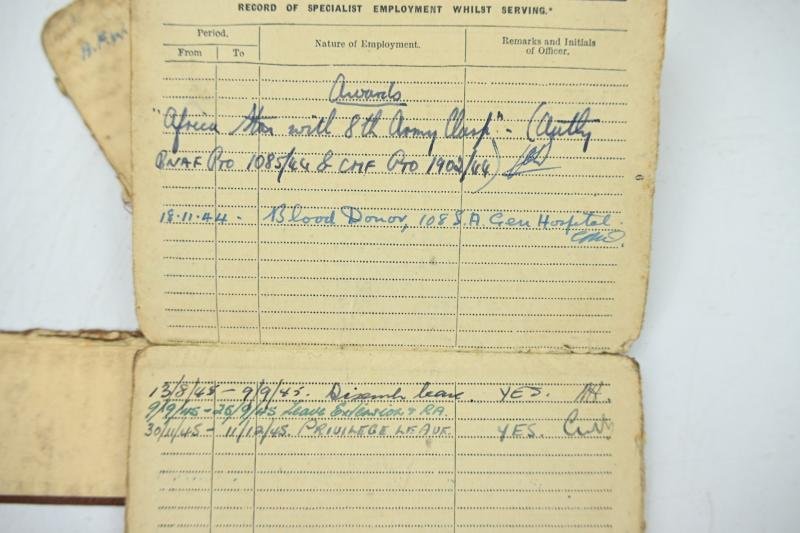 RECORD OF SPECIALIST EMPLOYMENT WHILST SERVING.*
Period. Nature of Employment. Remarks and Initials of Officer.
From To
Awards
"Africa Star with 8th Army Clasp" - (Authy
Pro 1085/44 & CMF Pro 1902/44)
18.11.44. - Blood Donor, 108 S.A Gen Hospital.
13/8/45 - 9/9/45. Disemb leave. YES.
9/9/45 - 26/9/45 Leave Extension & RA
30/11/45 - 11/12/45. PRIVILEGE LEAVE. YES.